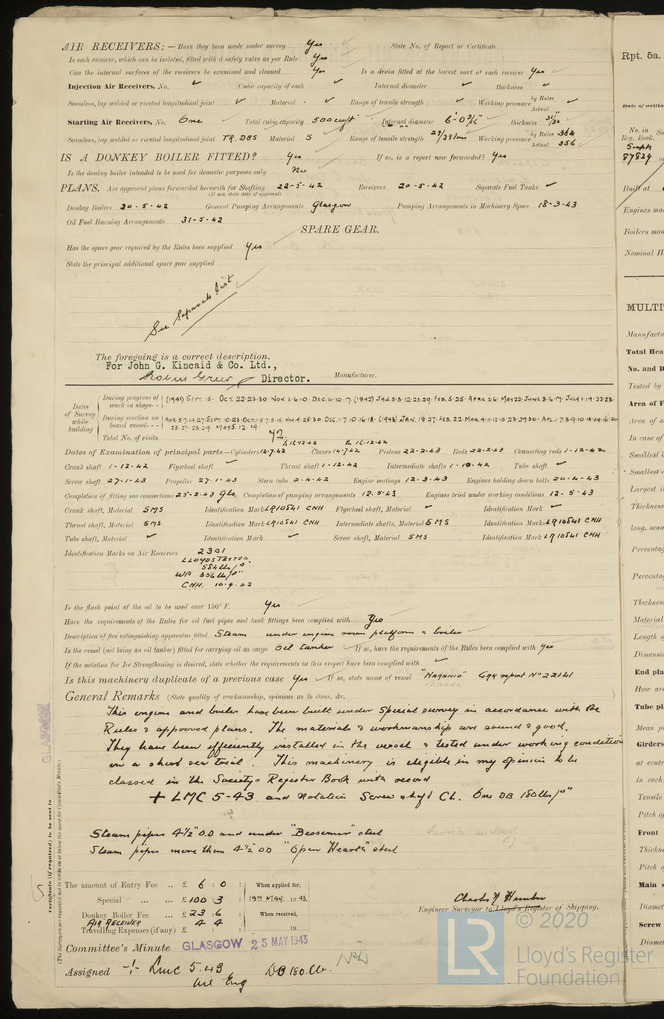 AIR RECEIVERS:— Have they been made under survey Yes State No. of Report or Certificate
Is each receiver, which can be isolated, fitted with a safety valve as per Rule Yes
Can the internal surfaces of the receivers be examined and cleaned Yes Is a drain fitted at the lowest part of each receiver Yes
Injection Air Receivers, No. Cubic capacity of each Internal diameter thickness
Seamless, lap welded or riveted longitudinal joint Material Range of tensile strength Working pressure by Rules Actual
Starting Air Receivers, No. One Total cubic capacity 500 cu ft Internal diameter thickness
Seamless, lap welded or riveted longitudinal joint TR. DBS Material S Range of tensile strength Working pressure by Rules 362 Actual 356
IS A DONKEY BOILER FITTED? Yes If so, is a report now forwarded? Yes
Is the donkey boiler intended to be used for domestic purposes only No
PLANS. Are approved plans forwarded herewith for Shafting 22-5-42 Receivers 20-5-42 Separate Fuel Tanks
(If not, state date of approval)
Donkey Boilers 20-5-42 General Pumping Arrangements Glasgow Pumping Arrangements in Machinery Space 18-3-43
Oil Fuel Burning Arrangements 31-5-42
SPARE GEAR.
Has the spare gear required by the Rules been supplied Yes
State the principal additional spare gear supplied
See Separate List
The foregoing is a correct description,
For John G. Kincaid & Co. Ltd.,
Director. Manufacturer.
Dates of Survey while building
During progress of work in shops--
During erection on board vessel--
Total No. of visits 72
Dates of Examination of principal parts—Cylinders 14.7.42 Covers 14.7.42 Pistons 22-2-43 Rods 22-2-43 Connecting rods 1-12-42
Crank shaft 1-12-42 Flywheel shaft Thrust shaft 1-12-42 Intermediate shafts 1-10-42 Tube shaft
Screw shaft 27-1-43 Propeller 27-1-43 Stern tube 2-4-42 Engine seatings 12-3-43 Engines holding down bolts 20-4-43
Completion of fitting sea connections 25-2-43 Gls. Completion of pumping arrangements 12.5.43 Engines tried under working conditions 12-5-43
Crank shaft, Material SMS Identification Mark LR10541 CNH Flywheel shaft, Material Identification Mark
Thrust shaft, Material SMS Identification Mark LR10541 CNH Intermediate shafts, Material SMS Identification Marks LR10541 CNH
Tube shaft, Material Identification Mark Screw shaft, Material SMS Identification Mark LR10541 CNH
Identification Marks on Air Receivers 2301
LLOYDS TEST
WP 356 lb/□"
CNH. 10-9-42
Is the flash point of the oil to be used over 150° F. Yes
Have the requirements of the Rules for oil fuel pipes and tank fittings been complied with Yes
Description of fire extinguishing apparatus fitted Steam under engine room platform & boiler
Is the vessel (not being an oil tanker) fitted for carrying oil as cargo Oil tanker If so, have the requirements of the Rules been complied with Yes
If the notation for Ice Strengthening is desired, state whether the requirements in this respect have been complied with
Is this machinery duplicate of a previous case Yes If so, state name of vessel Gck report No 22121
General Remarks (State quality of workmanship, opinions as to class, &c.
This engine and boiler have been built under Special survey in accordance with the
Rules & approved plans. The materials & workmanship are sound & good.
They have been efficiently installed in the vessel & tested under working conditions
on a short sea trial. This machinery is eligible in my opinion to be
classed in the Society's Register Book with record
+ LMC 5-43 and notation Screw shaft CL. One DB 180 lb/□"
Steam pipes 4½" O.D and under "Bessemer" steel
Steam pipes more than 4½" OD "Open Hearth" steel
The amount of Entry Fee .. £ 6 : 0 When applied for,
Special ... ... £ 100 : 3 19TH MAY. 1943
Donkey Boiler Fee £ 23 : 6 When received,
AIR RECEIVER 4 4
Travelling Expenses (if any) £ 19
Engineer Surveyor to Lloyd's Register of Shipping.
Committee's Minute GLASGOW 25 MAY 1943
Assigned + LMC 5.43 DB 180 lb.
Oil Eng
GLASGOW
Certificate (if required) to be sent to
(The Surveyors are requested not to write on or below the space for Committee's Minute.)
Rpt. 5a.
Date of writing
No. in
Reg. Book.
87829
Built at
Engines
Boilers
Nominal H
MULTI
Total Hea
No. and D
Tested by
Area of F
Area of
In case of
Smallest
Smallest
Largest i
Thickness
long. seam
Percentag
Percentag
Thickness
Material
Length o
Dimensi
End pla
How are
Tube pl
Mean p
Girders
at centr
in each
Tensile
Pitch o
Front
Thickn
Pitch o
Main s
Diamet
Screw
Diamet
© 2020
LR
Lloyd's Register
Foundation